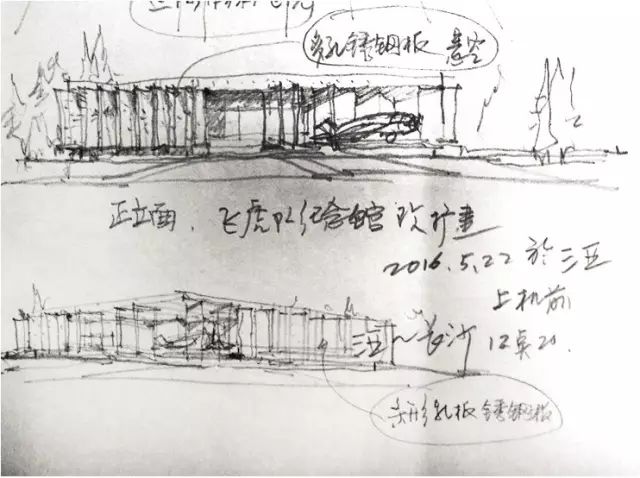 多孔锈钢板 悬空
正立面、飞虎队纪念馆改扩建
2016.5.22 於三亚
上机前
三亚~长沙 12点20.
条形孔板 锈钢板